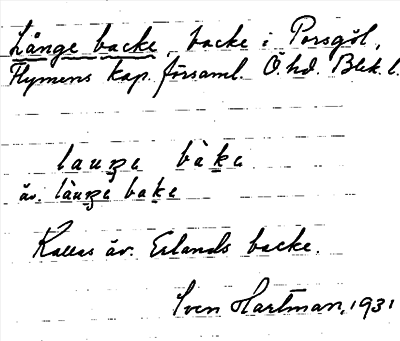 Långe backe, backe i Porsgöl,
Flymens kap. församl. Ö. hd. Blek. l.
lauŋe bàke
äv. làuŋe bake
Kallas äv. Erlands backe.
Sven Hartman, 1931